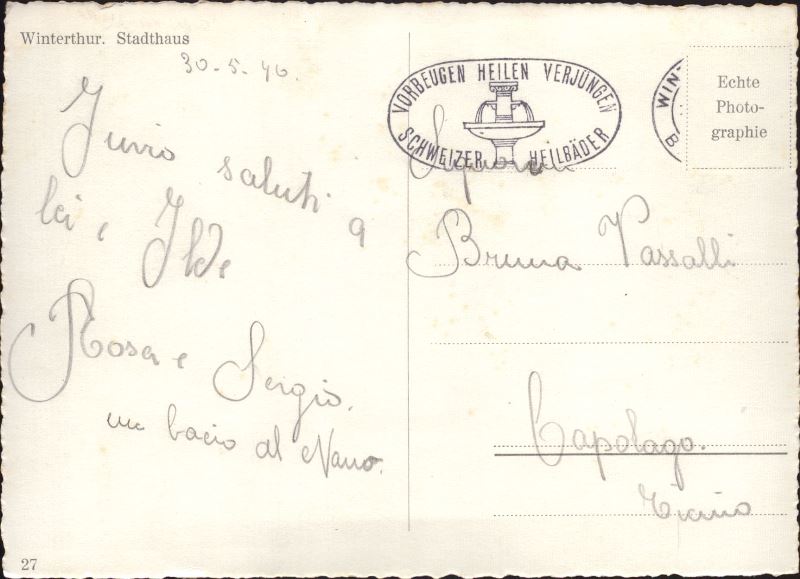 Winterthur. Stadthaus
30-5-46.
Invio saluti a
lei e Ilde
Rosa e Sergio.
un bacio al Nano.
27
VORBEUGEN HEILEN VERJÜNGEN
SCHWEIZER HEILBÄDER
WIN
B
Echte
Photo-
graphie
Bruna Vassalli
Capolago.
Ticino